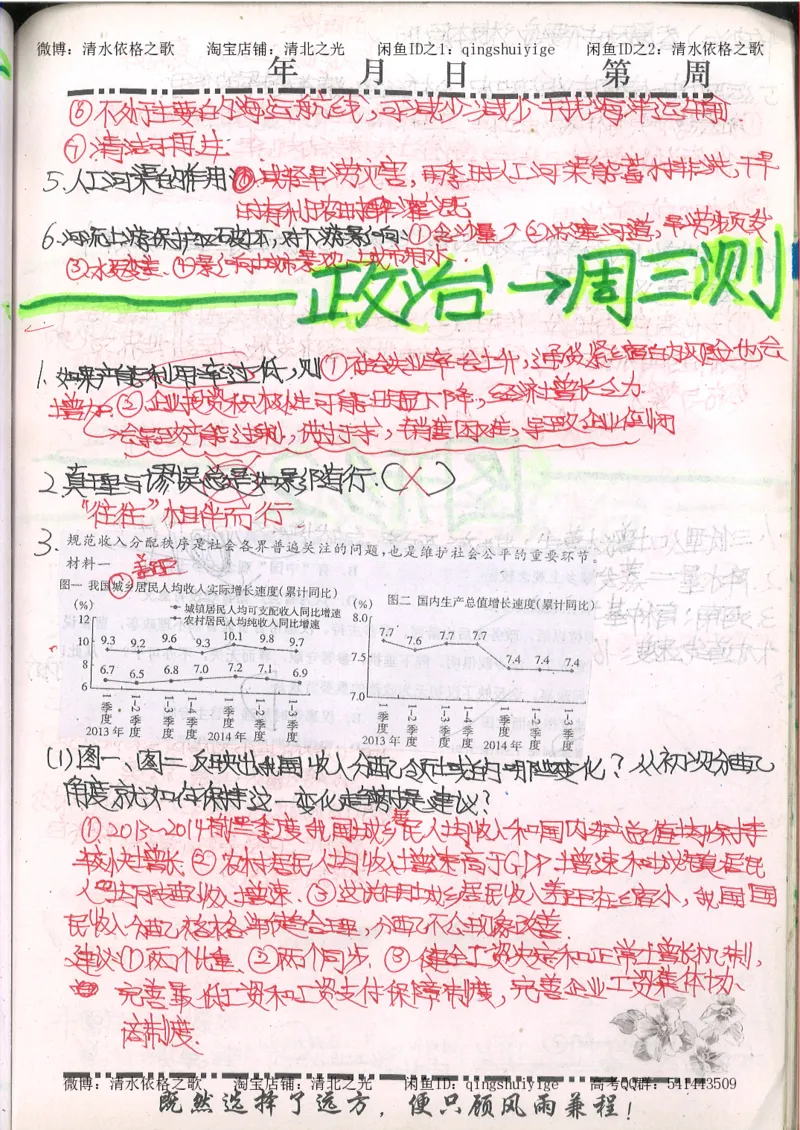 微博：清水依格之歌 淘宝店铺：清北之光 闲鱼ID之1：qingshuiyige 闲鱼ID之2：清水依格之歌
年 月 日 第 周
⑥不处于主要的海运航线，可减少或减少干扰海洋运输
⑦清洁可再生
5.人工河渠的作用：减轻旱涝灾害，雨季时人工河渠能蓄水排洪，干旱
时有利于农田灌溉
6.河流上游保护区破坏，对下游影响：①含沙量大②淤塞河道，旱涝频发
③水质变差 ④影响城市景观、城市用水.
政治→周三测
1.如果产能利用率过低，则①社会失业率会上升，通货紧缩内风险也会
增加.②企业投资积极性可能明显下降，经济增长乏力
会导致产能过剩，供过于求，销售困难，导致企业倒闭
2.真理与谬误总是如影随行.(×)
"往往" 相伴而行
3.规范收入分配秩序是社会各界普遍关注的问题，也是维护社会公平的重要环节。
材料一 差距
图一 我国城乡居民人均收入实际增长速度(累计同比) 图二 国内生产总值增长速度(累计同比)
(%) 城镇居民人均可支配收入同比增速 (%)
农村居民人均纯收入同比增速
12 8.0
10 9.3 9.2 9.6 9.3 10.1 9.8 9.7 7.7 7.6 7.7 7.7
8 6.7 6.5 6.8 7.0 7.2 7.1 6.9 7.5 7.4 7.4 7.4
6 7.0
1季度 1-2季度 1-3季度 1-4季度 1季度 1-2季度 1-3季度 1季度 1-2季度 1-3季度 1-4季度 1季度 1-2季度 1-3季度
2013年 2014年 2013年 2014年
(1)图一、图二反映出我国收入分配领域的哪些变化？从初次分配
角度就如何保持这一变化趋势提建议？
①2013~2014前三季度我国城乡居民人均收入和国内生产总值均保持
较快增长.②农村居民人均收入增速高于GDP增速和城镇居民
人均可支配收入增速.③这说明城乡居民收入差距在缩小，我国国
民收入分配格局渐趋合理，分配不公现象改善.
建议①两个比重.②两个同步.③健全工资决定和正常增长机制，
完善最低工资和工资支付保障制度，完善企业工资集体协
商制度.
微博：清水依格之歌 淘宝店铺：清北之光 闲鱼ID：qingshuiyige 高考QQ群：541443509
既然选择了远方，便只顾风雨兼程！